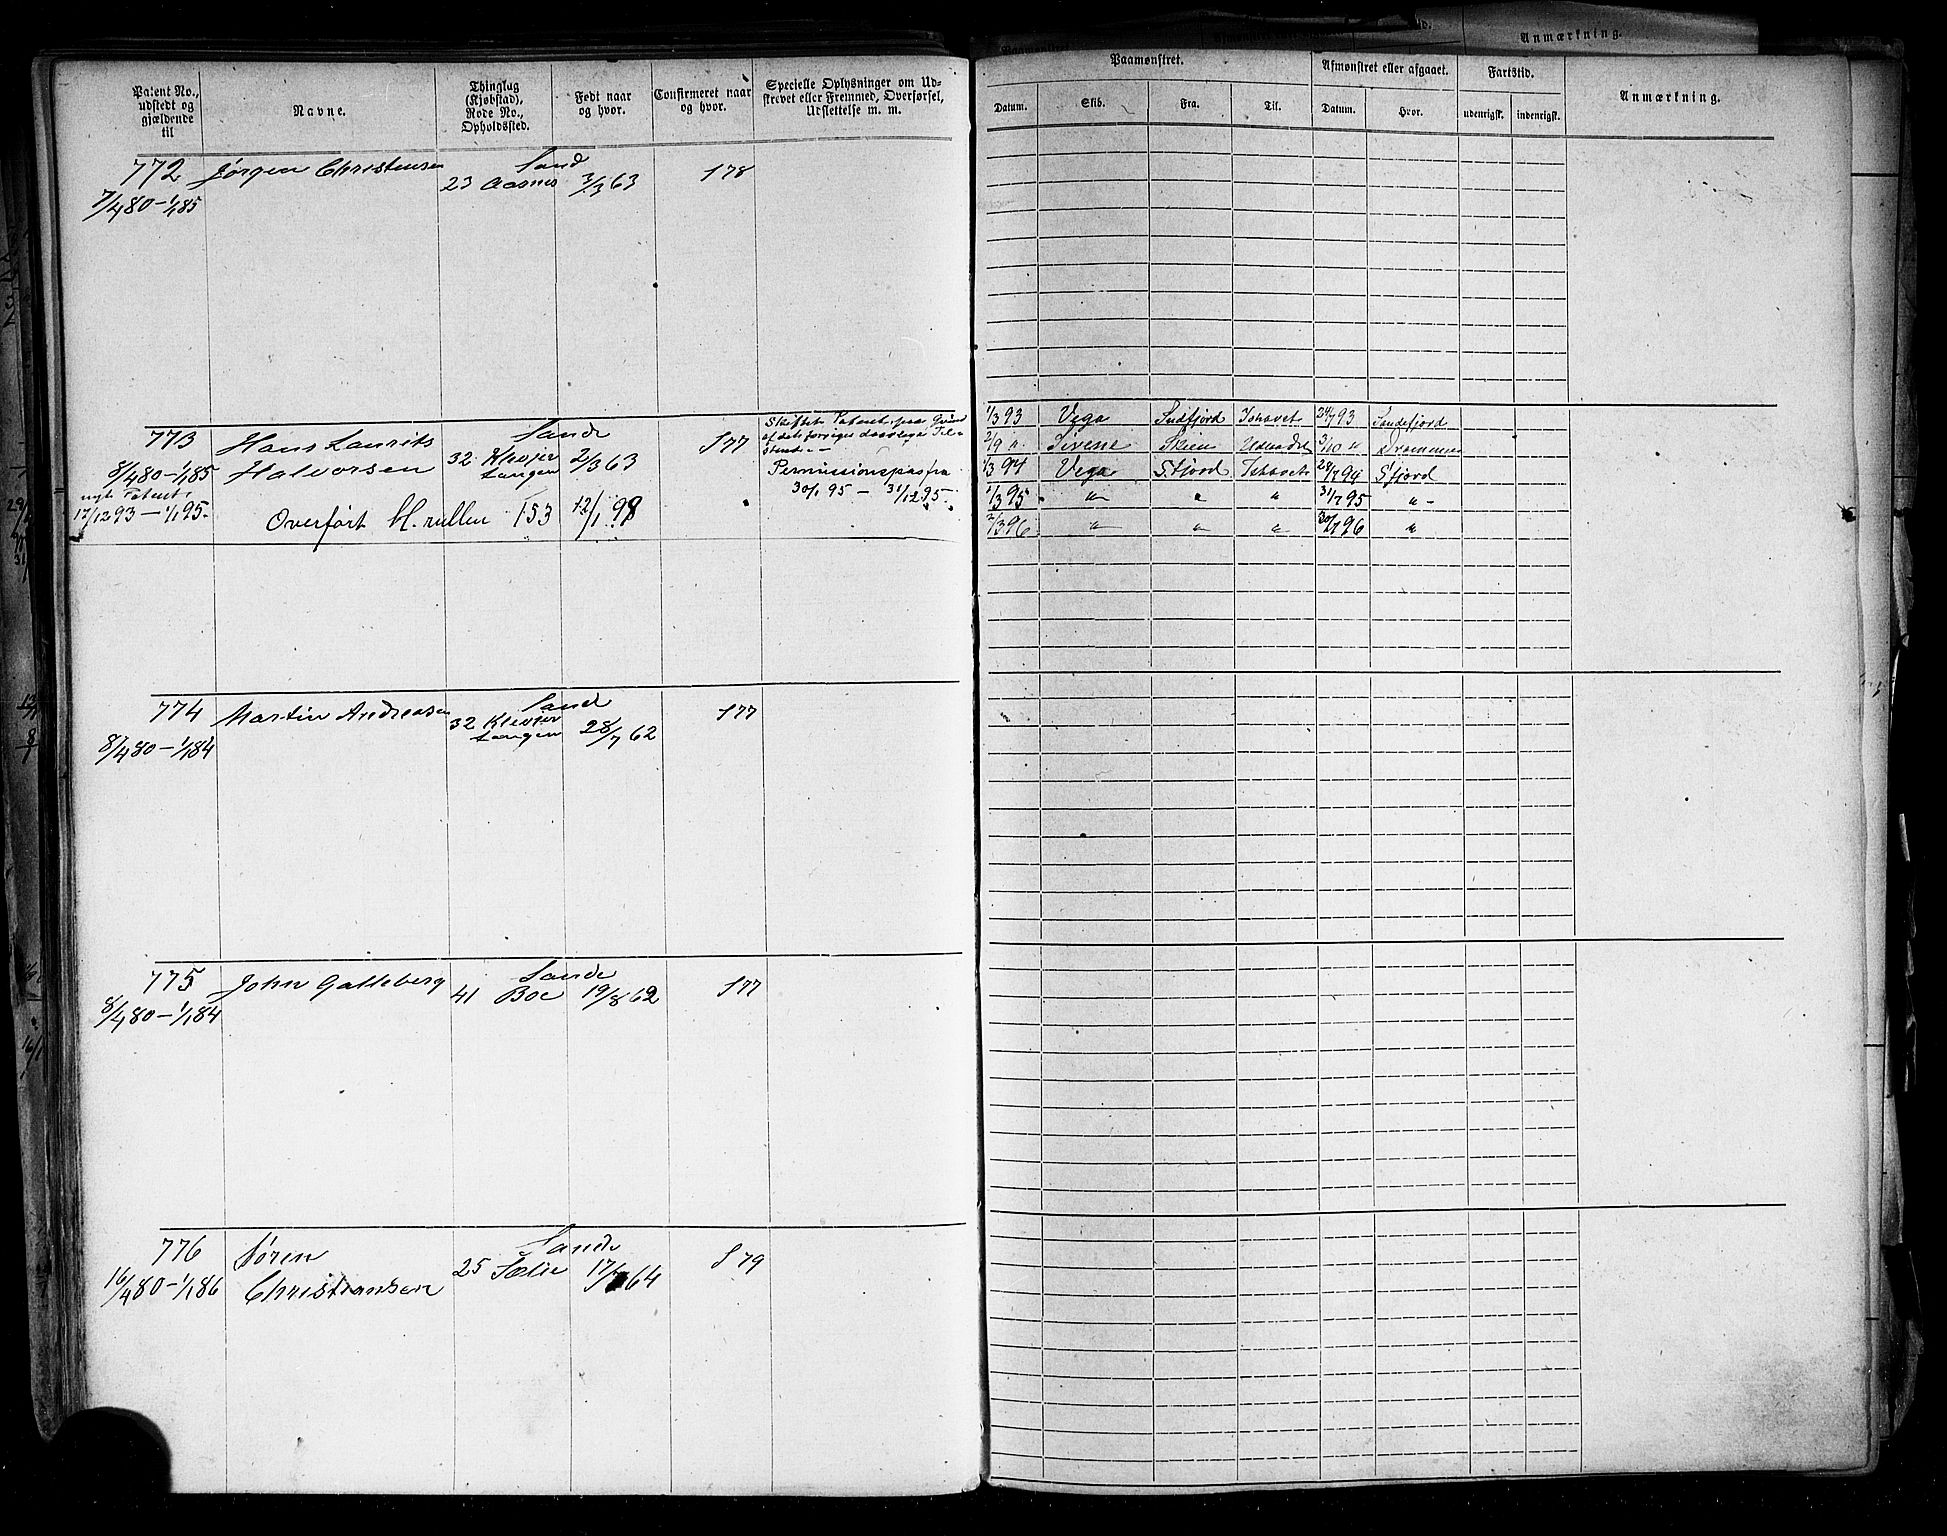 Patent No., udstedt og gjældende til
Navne.
Thinglag (Kjøbstad), Rode No., Opholdssted.
Født naar og hvor.
Confirmeret naar og hvor.
Specielle Oplysninger om Udskrevet eller Fremmed, Overførsel, Udslettelse m. m.
Paamønstret.
Afmønstret eller afgaaet.
Fartstid.
Anmærkning.
Datum.
Skib.
Fra.
Til.
Datum.
Hvor.
udenrigsk.
indenrigsk.
Anmærkning.
772 Jørgen Christensen Sand 178
7/4 80 – 1/1 85 23 Aasnes 3/3 63
773 Hans Laurits Sande 177
8/4 80 – 1/1 85 Halvorsen 32 Klever tangen 2/3 63
nyt Patent
17/12 93 – 1/1 95. Overført H. rullen 153 12/1 98
Permissionspas fra
30/1 95 – 31/12 95.
1/3 93 Vega Sndfjord Ishavet 24/7 93 Sandefjord
2/9 " Sirene Skien Udlandet 3/10 " Drammen
1/3 94 Vega S.fjord Ishavet 28/7 94 S'fjord
1/3 95 " " " 31/7 95 "
2/3 96 " " " 30/7 96 "
774 Martin Andreasen Sand 177
8/4 80 – 1/1 84 32 Klever tangen 28/7 62
775 John Galleberg Sande 177
8/4 80 – 1/1 84 41 Boe 19/8 62
776 Søren Sande 179
16/4 80 – 1/1 86 Christiansen 25 17/ 64